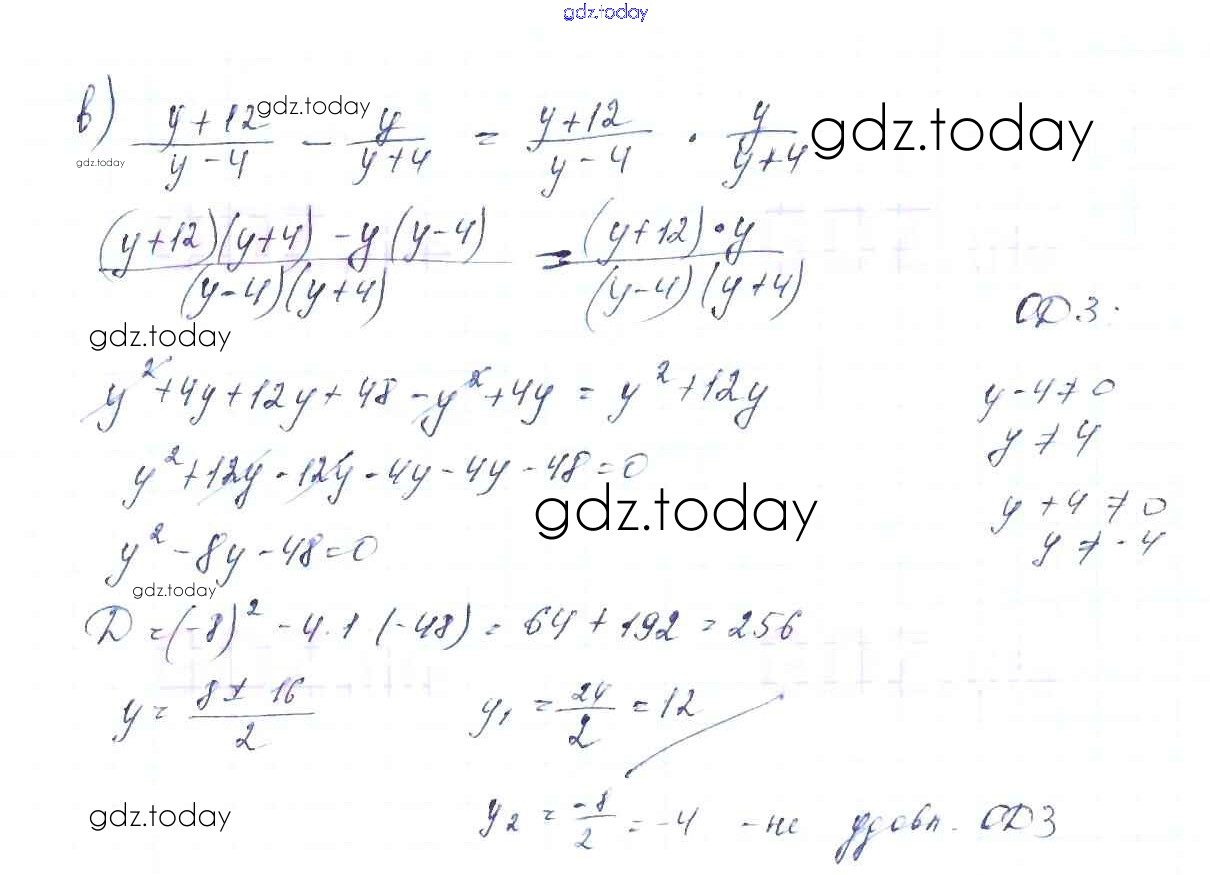 gdz.today
в) (y+12)/(y-4) - y/(y+4) = (y+12)/(y-4) · y/(y+4)
gdz.today
gdz.today
gdz.today
((y+12)(y+4) - y(y-4))/((y-4)(y+4)) = ((y+12)·y)/((y-4)(y+4))
ОДЗ:
gdz.today
y² + 4y + 12y + 48 - y² + 4y = y² + 12y
y - 4 ≠ 0
y ≠ 4
y² + 12y - 12y - 4y - 4y - 48 = 0
gdz.today
y + 4 ≠ 0
y ≠ -4
y² - 8y - 48 = 0
gdz.today
D = (-8)² - 4·1 (-48) = 64 + 192 = 256
y = (8 ± 16)/2
y₁ = 24/2 = 12
gdz.today
y₂ = -8/2 = -4 - не удовл. ОДЗ